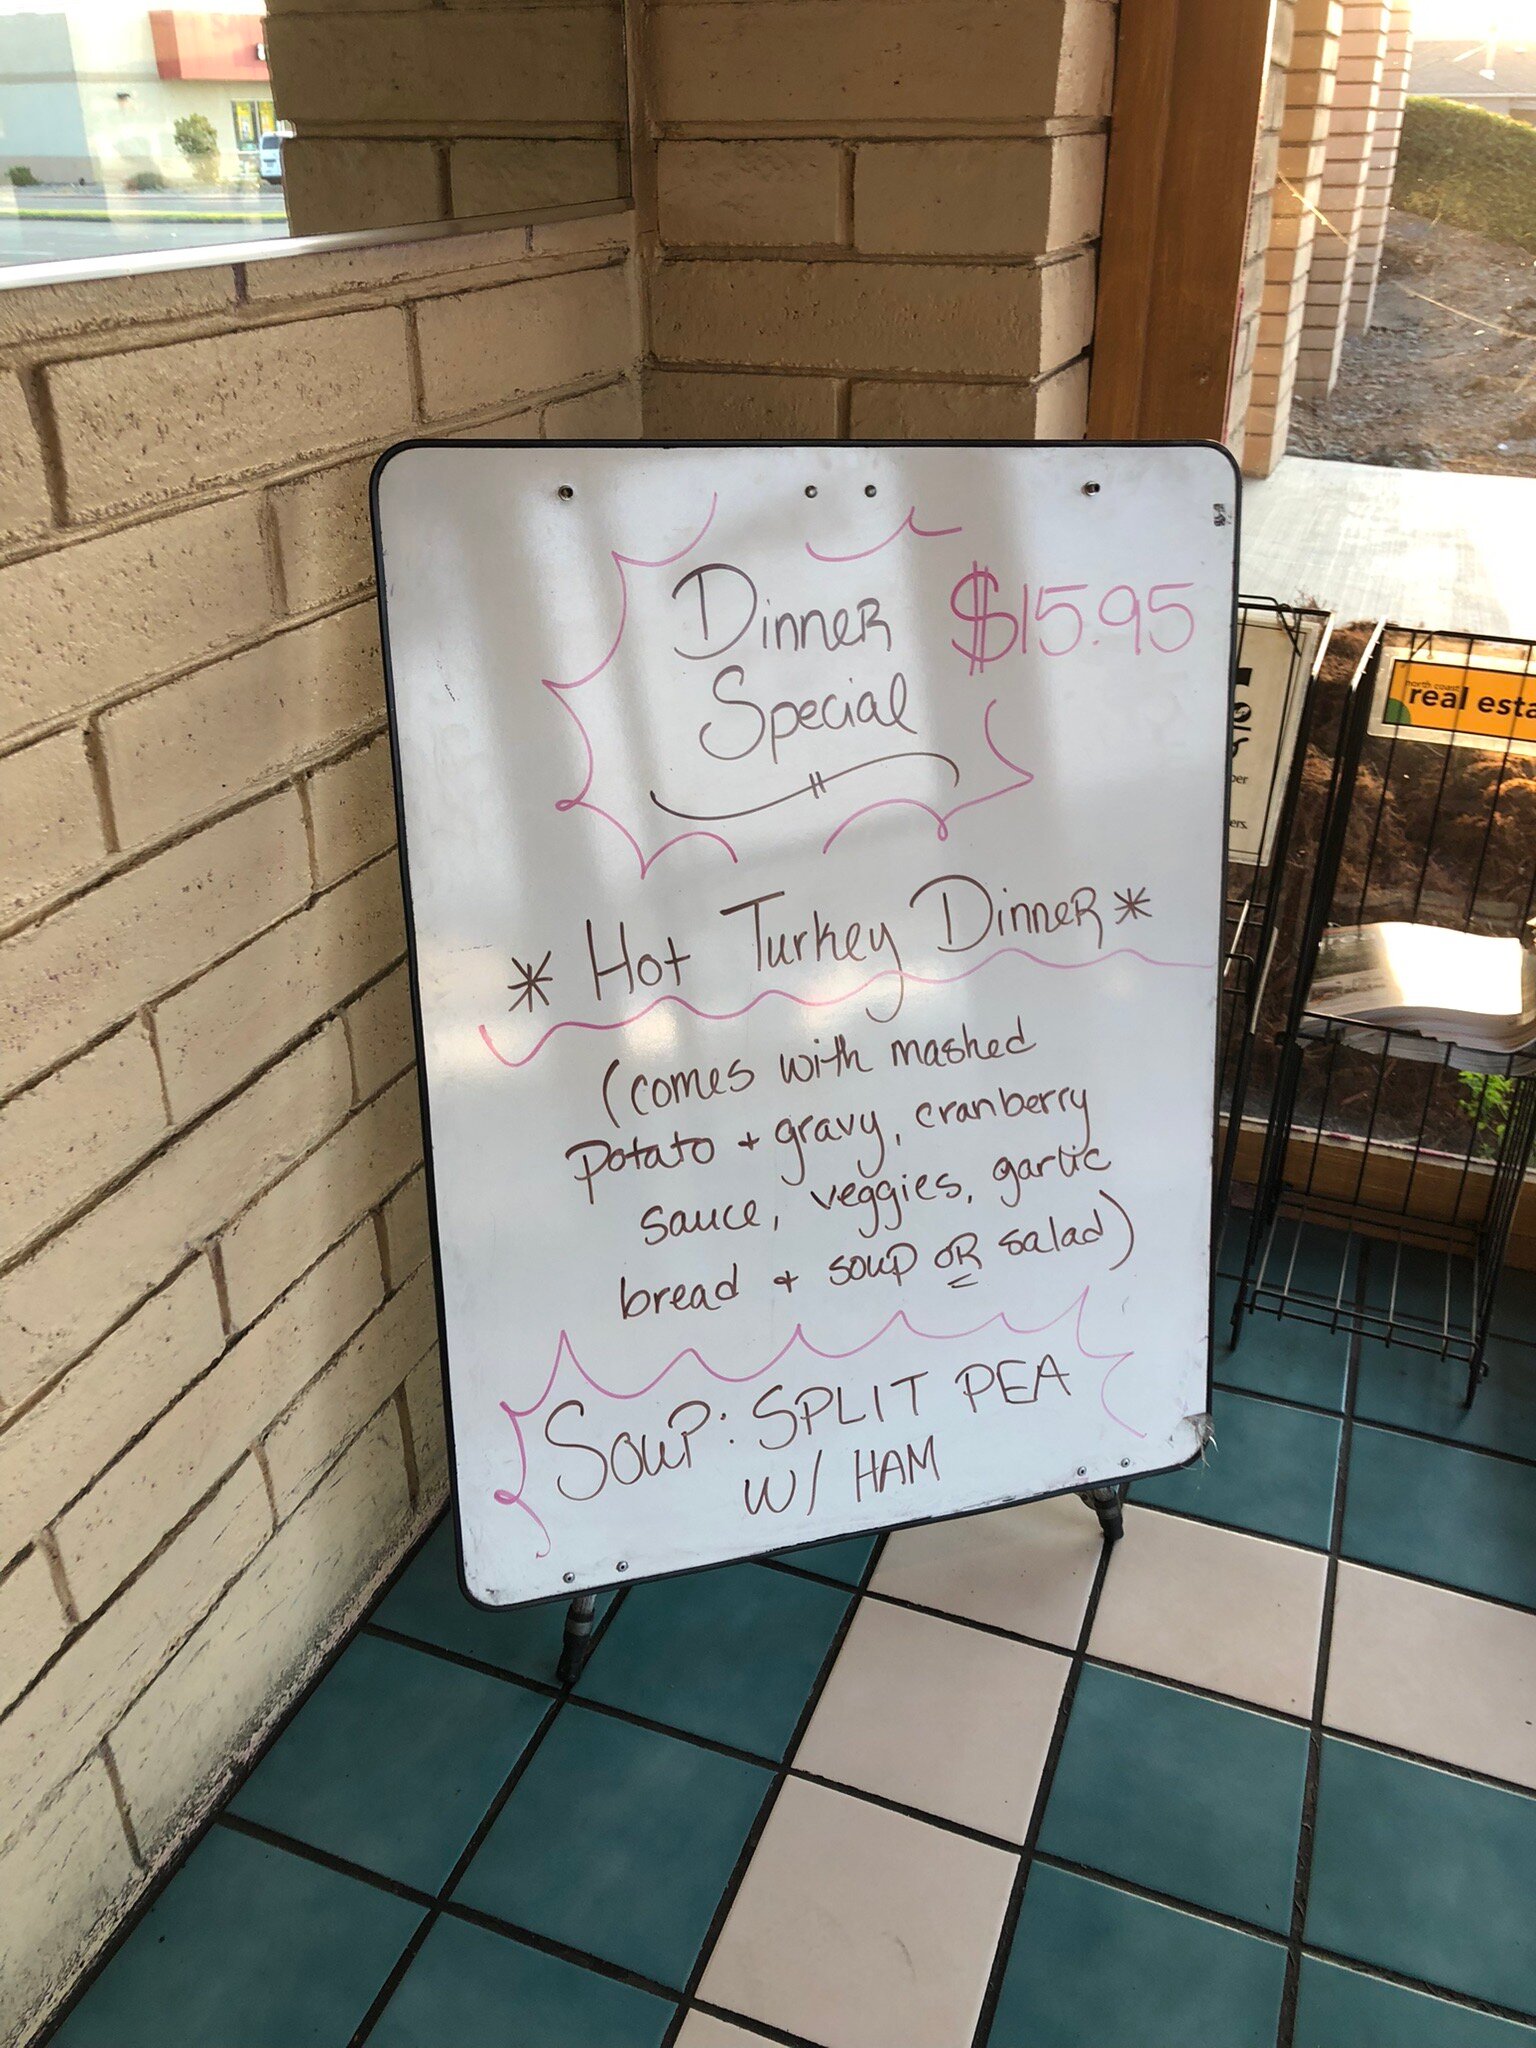 Dinner $15.95
Special
* Hot Turkey Dinner *
(comes with mashed
potato + gravy, cranberry
sauce, veggies, garlic
bread + soup OR salad)
Soup: SPLIT PEA
W/ HAM
north coast
real esta